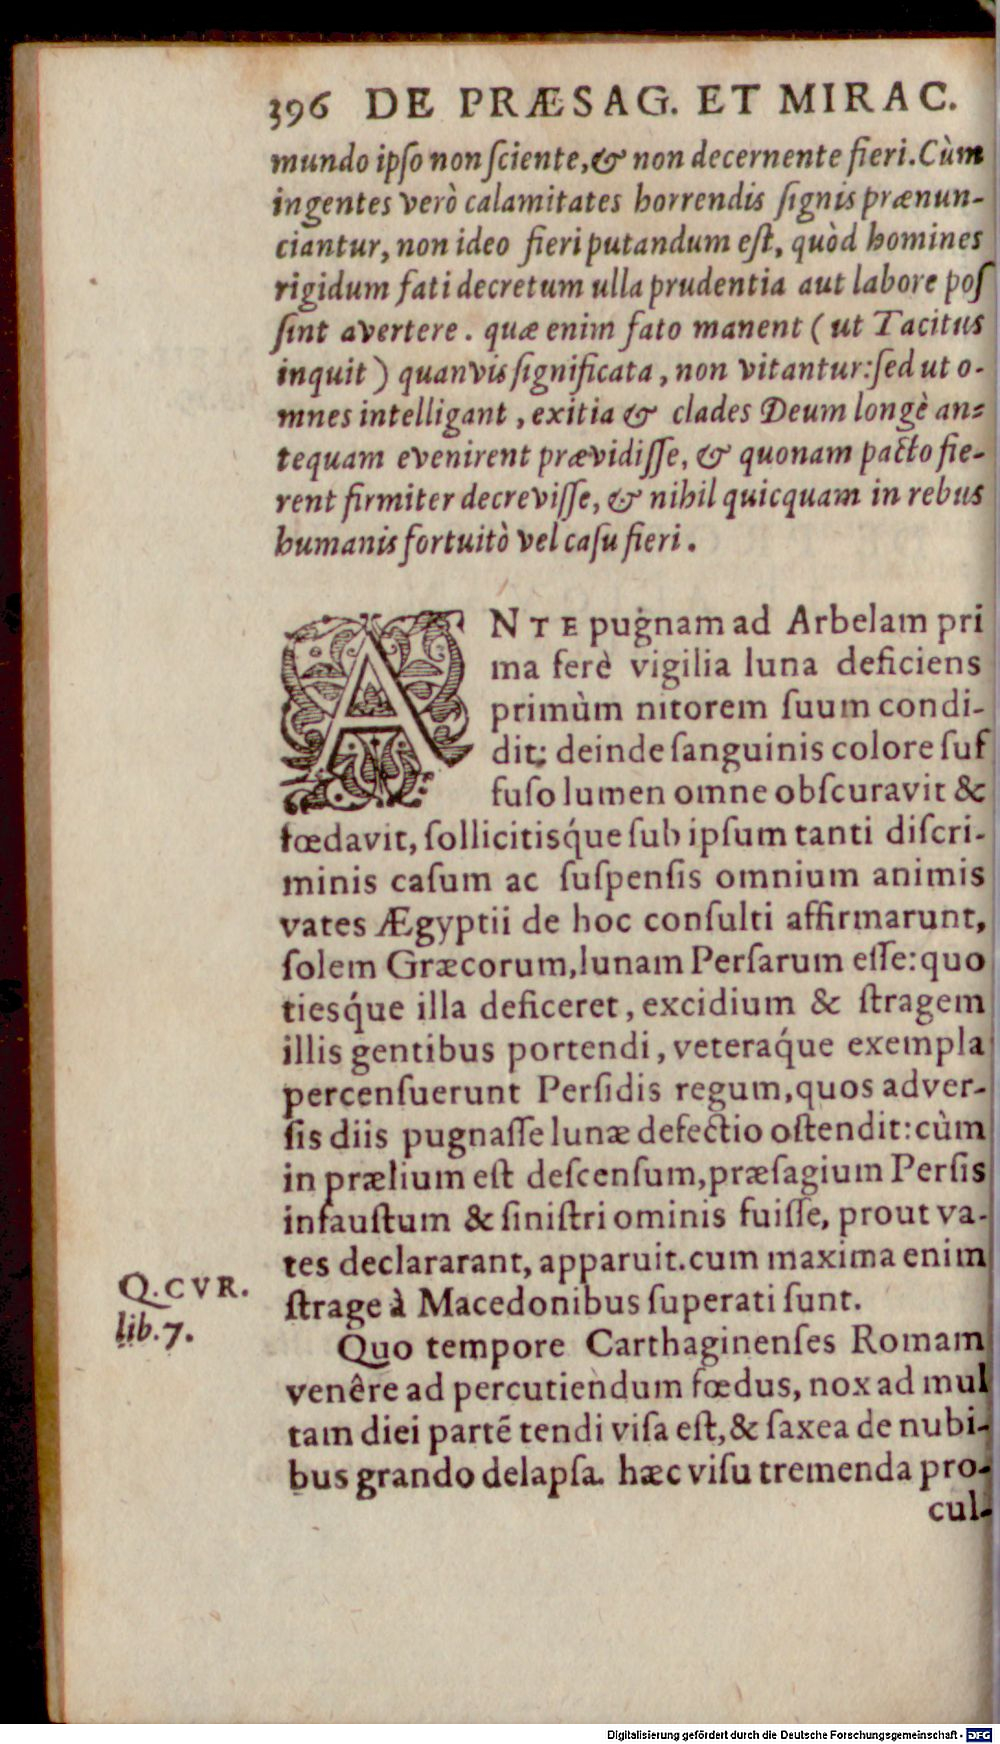 396 DE PRÆSAG. ET MIRAC.
mundo ipſo non ſciente, & non decernente fieri. Cùm
ingentes verò calamitates horrendis ſignis prænun-
ciantur, non ideo fieri putandum eſt, quòd homines
rigidum fati decretum ulla prudentia aut labore poſ
ſint avertere. quæ enim fato manent (ut Tacitus
inquit) quanvis ſignificata, non vitantur: ſed ut o-
mnes intelligant, exitia & clades Deum longè an-
tequam evenirent prævidiſſe, & quonam pacto fie-
rent firmiter decreviſſe, & nihil quicquam in rebus
humanis fortuitò vel caſu fieri.
ANTE pugnam ad Arbelam pri
ma ferè vigilia luna deficiens
primùm nitorem ſuum condi-
dit: deinde ſanguinis colore ſuf
fuſo lumen omne obſcuravit &
fœdavit, ſollicitisq́ue ſub ipſum tanti diſcri-
minis caſum ac ſuſpenſis omnium animis
vates Ægyptii de hoc conſulti affirmarunt,
ſolem Græcorum, lunam Perſarum eſſe: quo
tiesq́ue illa deficeret, excidium & ſtragem
illis gentibus portendi, veteraq́ue exempla
percenſuerunt Perſidis regum, quos adver-
ſis diis pugnaſſe lunæ defectio oſtendit: cùm
in prælium eſt deſcenſum, præſagium Perſis
infauſtum & ſiniſtri ominis fuiſſe, prout va-
tes declararant, apparuit. cum maxima enim
ſtrage à Macedonibus ſuperati ſunt.
Q. CVR.
lib. 7.
Quo tempore Carthaginenſes Romam
venêre ad percutiendum fœdus, nox ad mul
tam diei partē tendi viſa eſt, & ſaxea de nubi-
bus grando delapſa. hæc viſu tremenda pro-
cul-
Digitalisierung gefördert durch die Deutsche Forschungsgemeinschaft - DFG